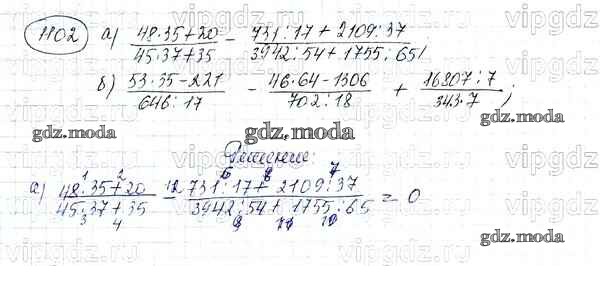 1102 а) (48·35+20)/(45·37+35) − (731:17+2109:37)/(3942:54+1755:65)
б) (53·35−221)/(646:17) − (46·64−1306)/(702:18) + (16807:7)/(343·7);
gdz.moda gdz.moda gdz.moda
Решение:
а) (48·35+20)/(45·37+35) − (731:17+2109:37)/(3942:54+1755:65) = 0
gdz.moda gdz.moda